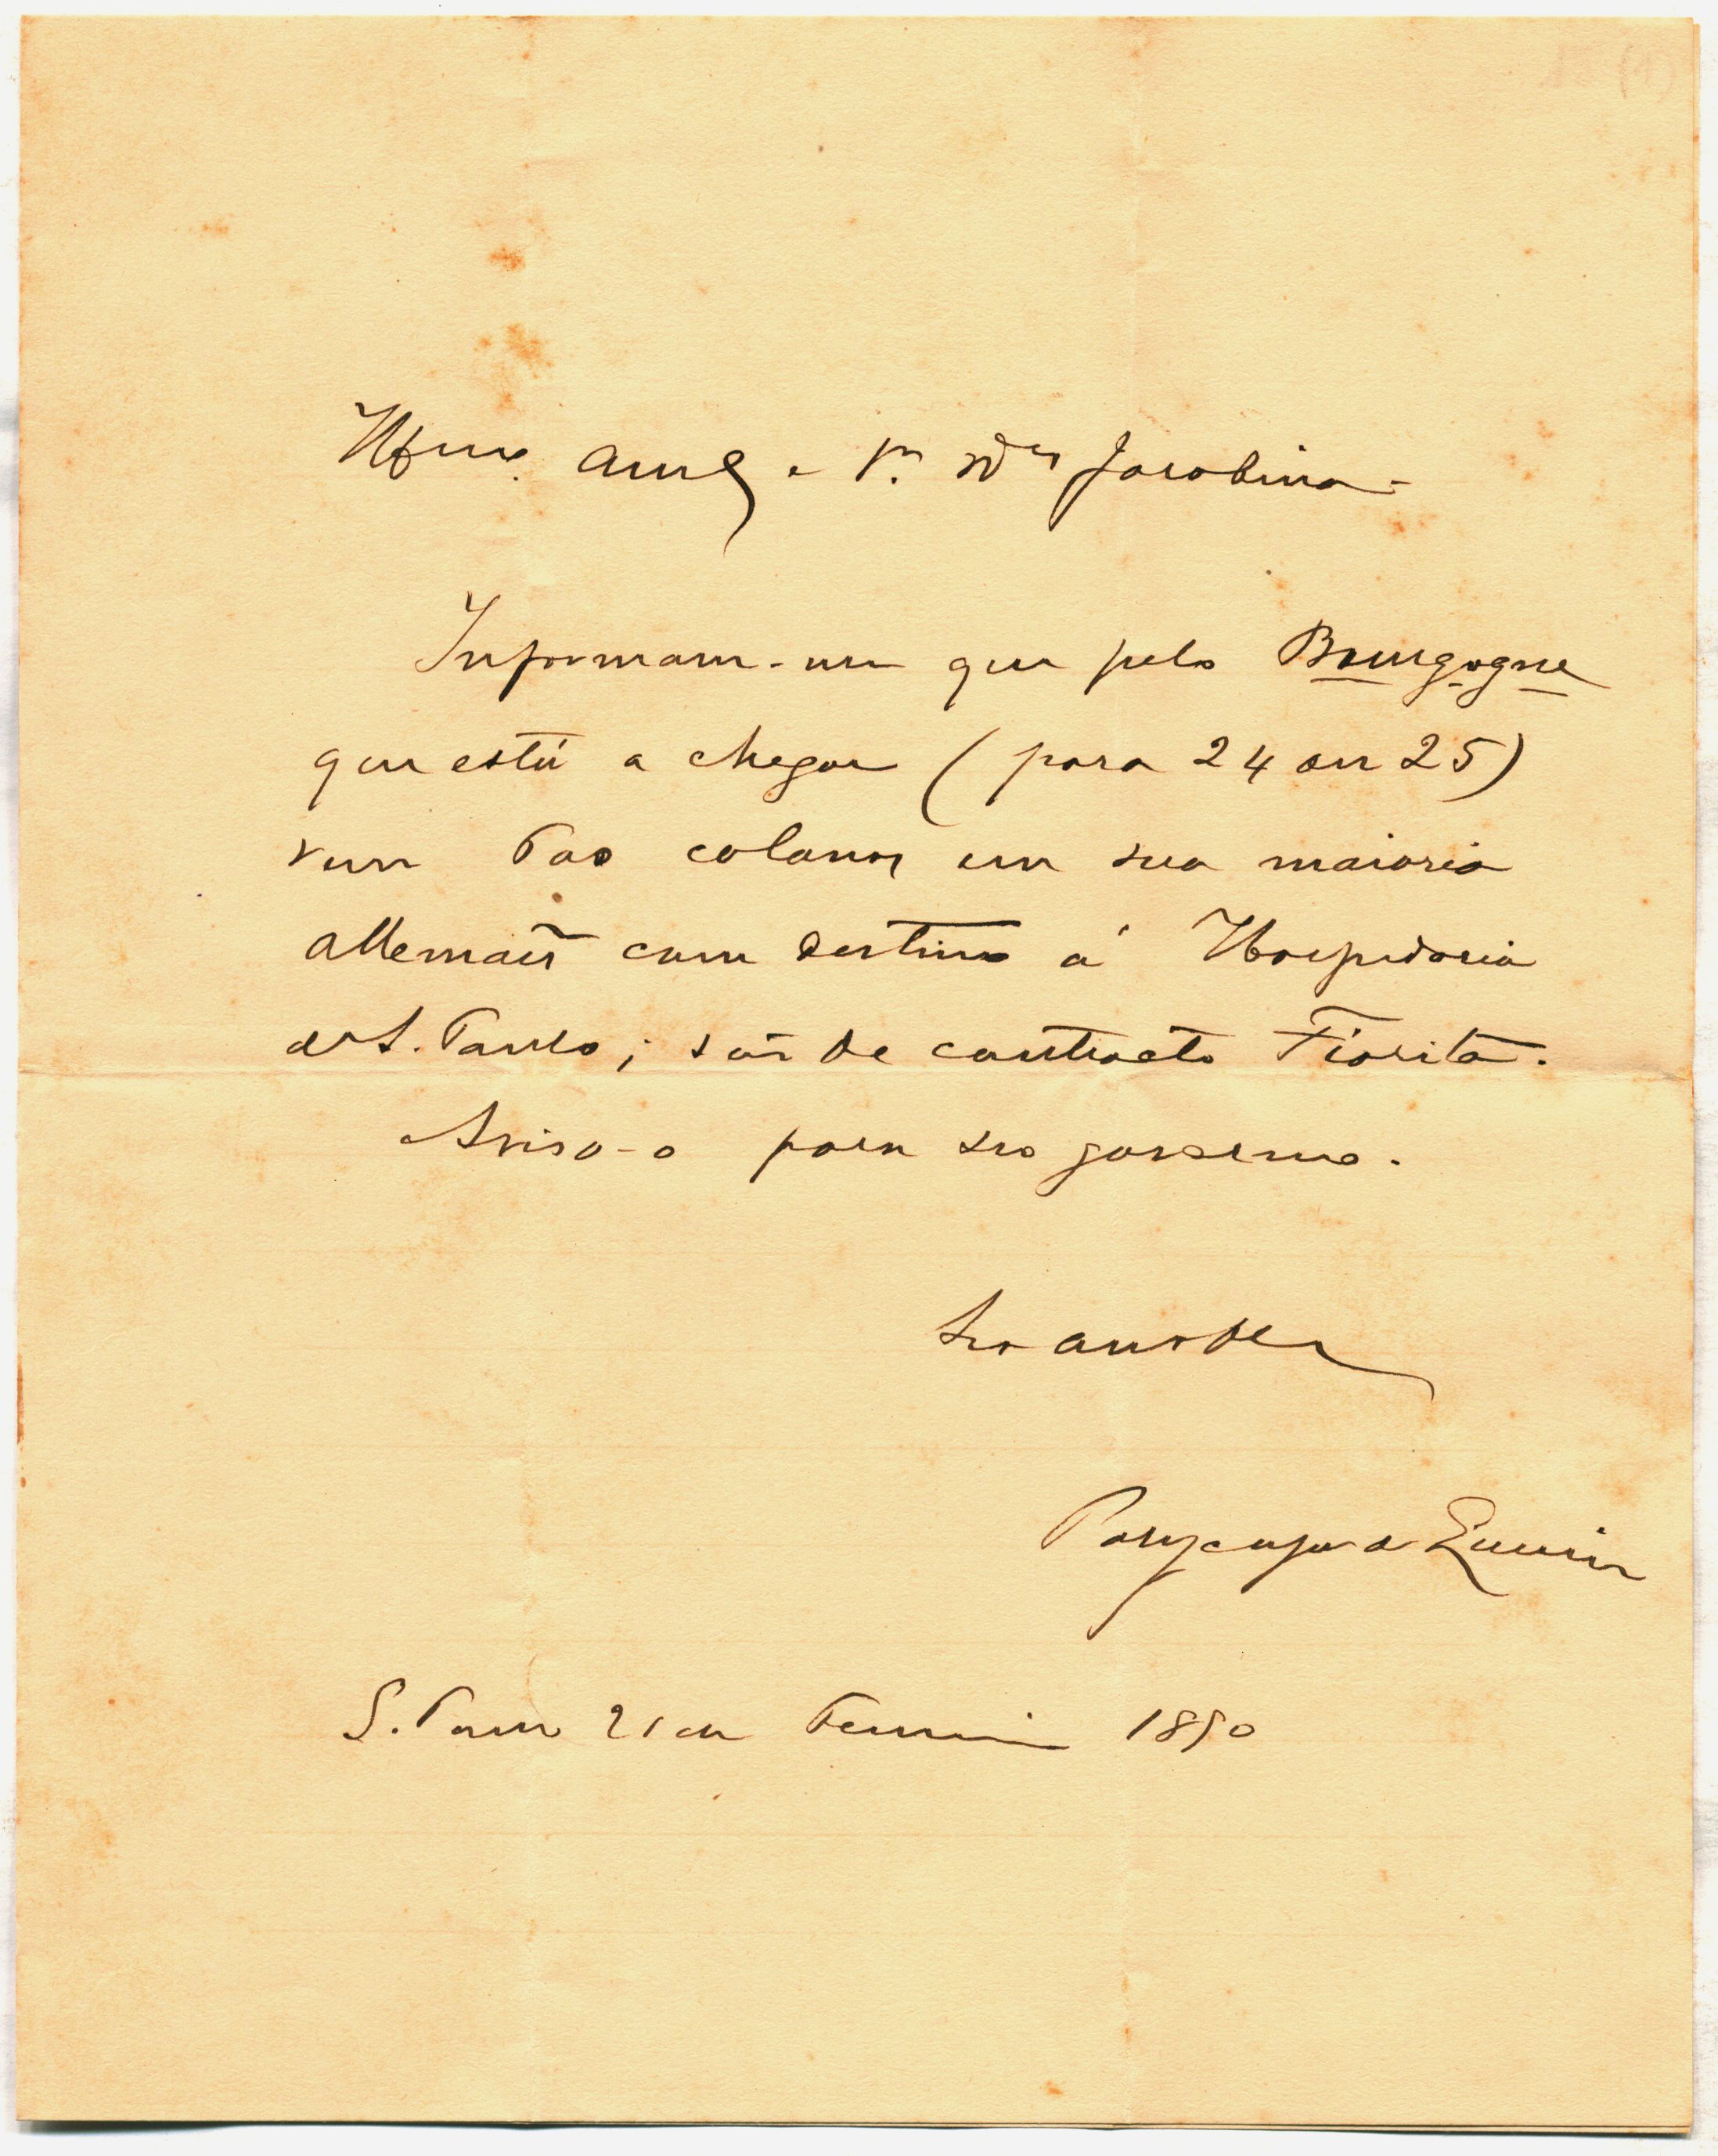 Illmo. Amg. e Sr. Dor Jacobina.
Informam-me que pelo Bourgogne
que está a chegar (para 24 ou 25)
vem 600 colonos em sua maioria
allemães com destino á Hospedaria
de S. Paulo; são de contracto Fiorita.
Aviso-o para seo governo.
Seo am
Polycarpo de
S. Paulo 21 de Fevereiro 1890